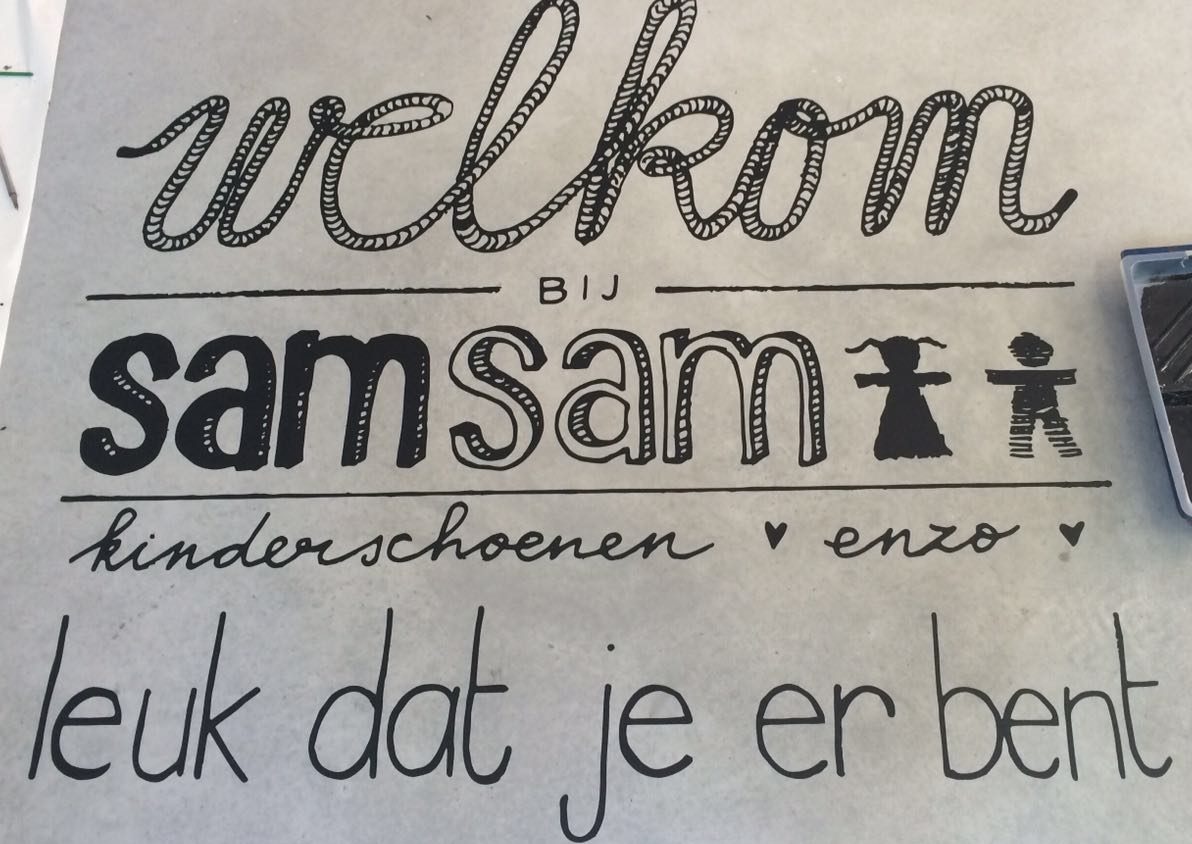 welkom
BIJ
samsam
kinderschoenen ♥ enzo ♥
leuk dat je er bent